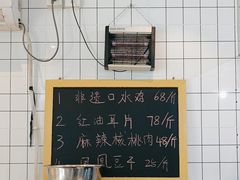 1 非遗口水鸡 68/斤
2 红油耳片 78/斤
3 麻辣核桃肉 48/斤
4 凤凰豆干 25/斤